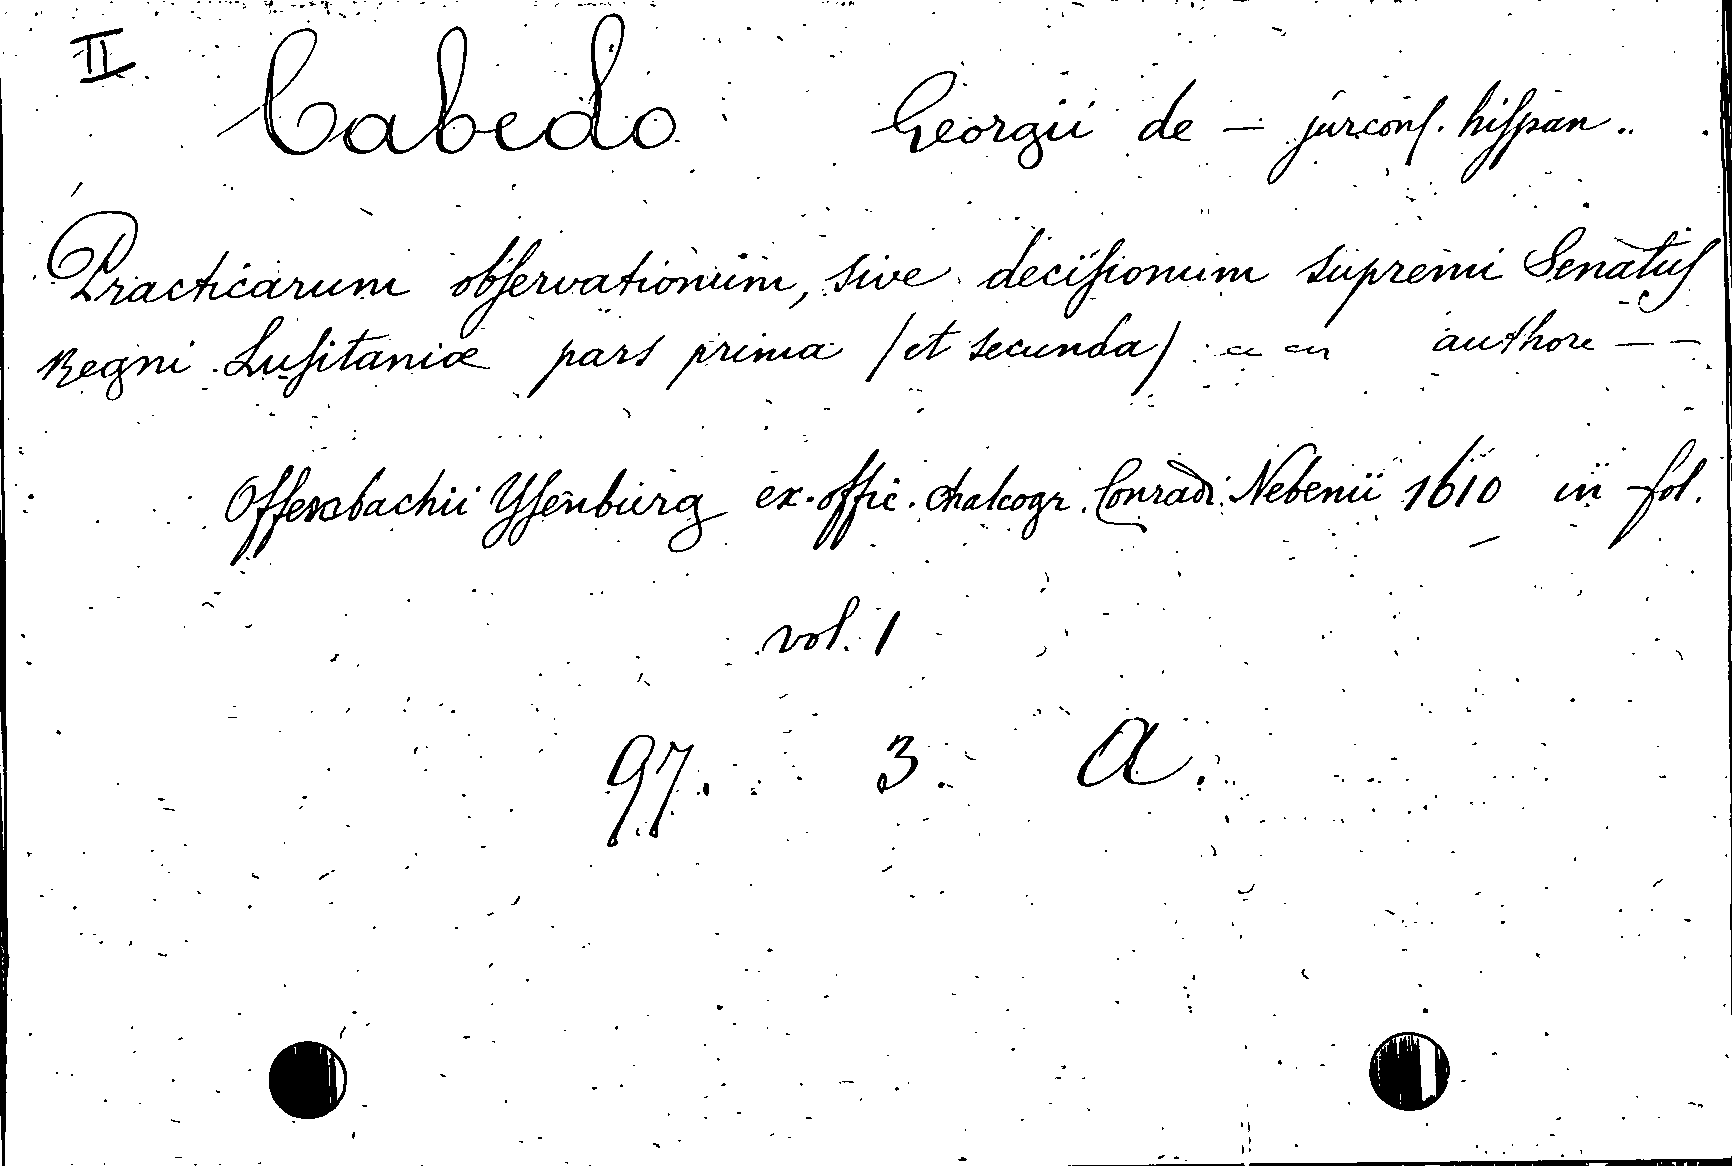 II
Cabedo Georgii de — jurconſ. hiſpan..
Practicarum obſervationum, sive deciſionum supremi Senatuſ
Regni Luſitaniæ pars prima /et secunda/ authore — —
Offenbachii Yſenburg ex offic. chalcogr. Conradi Nebenii 1610 in fol.
vol. 1
97. 3. A.